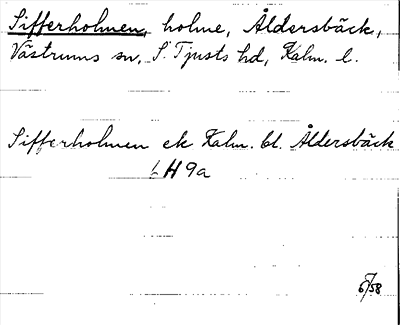 Sifferholmen, holme, Åldersbäck,
Västrums sn, S. Tjusts hd, Kalm. l.
Sifferholmen ek Kalm. bl. Åldersbäck
6H9a